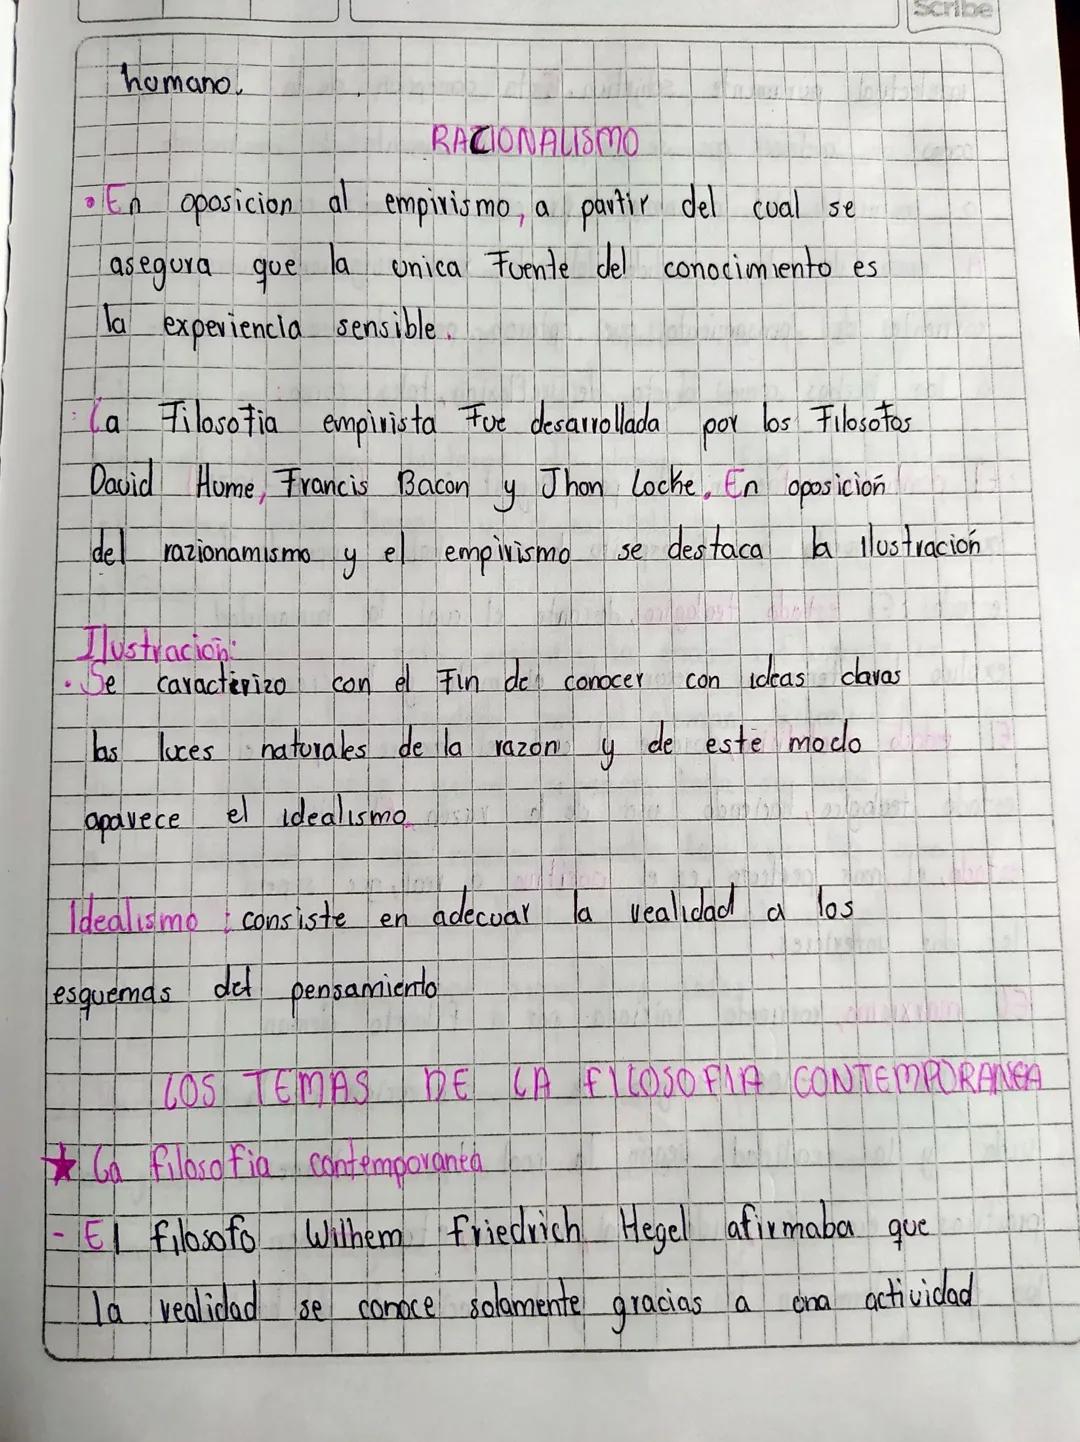 Scribe
humano.
RAZIONALISMO
• En oposicion al empirismo, a partir del cual se
asegura que la unica Fuente del conocimiento es
la experiencia sensible.
: La Filosofia empirista Fue desarrollada por los Filosofos
David Hume, Francis Bacon y Jhon Locke. En oposición
del razionamismo y el empirismo se destaca la ilustración
Ilustración:
• Se caracterizo con el Fin de conocer con ideas claras
las luces naturales de la razon y de este modo
aparece el idealismo.
Idealismo : consiste en adecuar la realidad a los
esquemas del pensamiento
LOS TEMAS DE LA FILOSOFIA CONTEMPORANEA
★ La filosofia contemporanea
- El filosofo Wilhem Friedrich Hegel afirmaba que
la realidad se conoce solamente gracias a una actividad